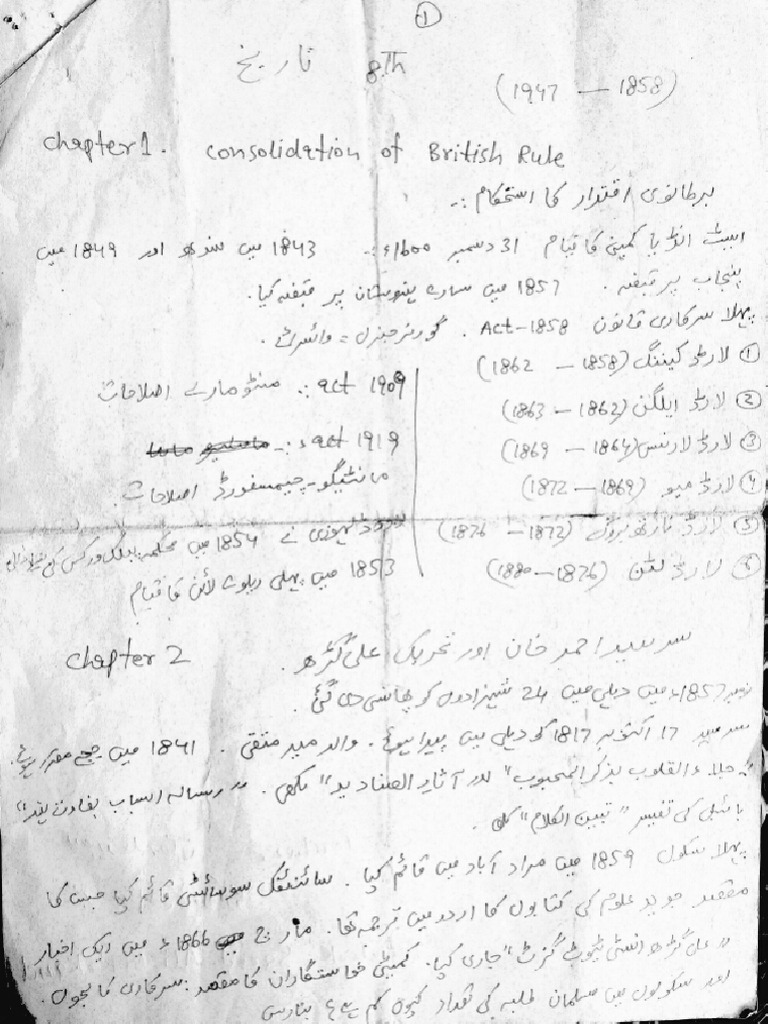 ①
تاریخ 8Th
(1947 — 1858)
Chapter 1. Consolidation of British Rule
برطانوی اقتدار کا استحکام :-
ایسٹ انڈیا کمپنی کا قیام 31 دسمبر 1600ء :. 1843 میں سندھ اور 1849 میں
پنجاب پر قبضہ . 1857 میں سارے ہندوستان پر قبضہ کیا.
پہلا سرکاری قانون Act-1858 . گورنر جنرل = وائسرائے .
① لارڈ کیننگ (1858 – 1862)
② لارڈ ایلگن (1862 – 1863)
③ لارڈ لارنس (1864 – 1869)
④ لارڈ میو (1869 – 1872)
⑤ لارڈ نارتھ بروک (1872 – 1876)
⑥ لارڈ لٹن (1876 – 1880)
act 1909 :. منٹو مارلے اصلاحات
act 1919ء :-
مانٹیگو - چیمسفورڈ اصلاحات .
لارڈ ڈلہوزی نے 1854 میں محکمہ پبلک ورکس کی
1853 میں پہلی ریلوے لائن کا قیام
Chapter 2 سرسید احمد خان اور تحریک علی گڑھ .
1857ء میں دہلی میں 24 شہزادوں کو پھانسی دی گئی .
سرسید 17 اکتوبر 1817 کو دہلی میں پیدا ہوئے . والد میر متقی . 1841 میں جج مقرر ہوئے.
" جلاء القلوب بذکر المحبوب " اور آثار الصنادید " لکھی . " رسالہ اسباب بغاوت ہند "
بائبل کی تفسیر " تبیین الکلام " لکھی.
پہلا سکول 1859 میں مراد آباد میں قائم کیا . سائنٹفک سوسائٹی قائم کیا جس کا
مقصد جدید علوم کی کتابوں کا اردو میں ترجمہ تھا . مارچ 1866ء میں ایک اخبار
" علی گڑھ انسٹی ٹیوٹ گزٹ " جاری کیا . کمیٹی خواستگاران کا مقصد : سرکاری کالجوں
اور سکولوں میں مسلمان طلبہ کی تعداد کیوں کم ہے ؟ بنارس